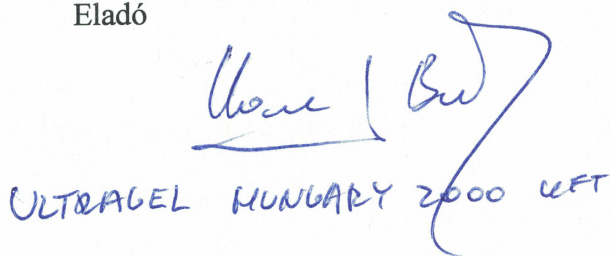 Eladó
ULTRAGEL HUNGARY 2000 KFT